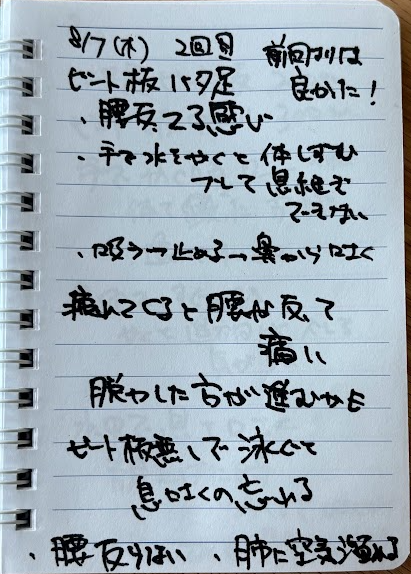 8/7(木) 2回目 前回よりは
ビート板バタ足 良かった!
・腰反ってる感じ
・手で水をやくと体しずむ
して息継ぎ
できない
・吸う→止める→鼻から吐く
痛んでくると腰が反って
痛い
脱やした方が進むかも
ビート板無しで泳ぐと
息吐くの忘れる
・腰反りはない ・肺に空気溜る